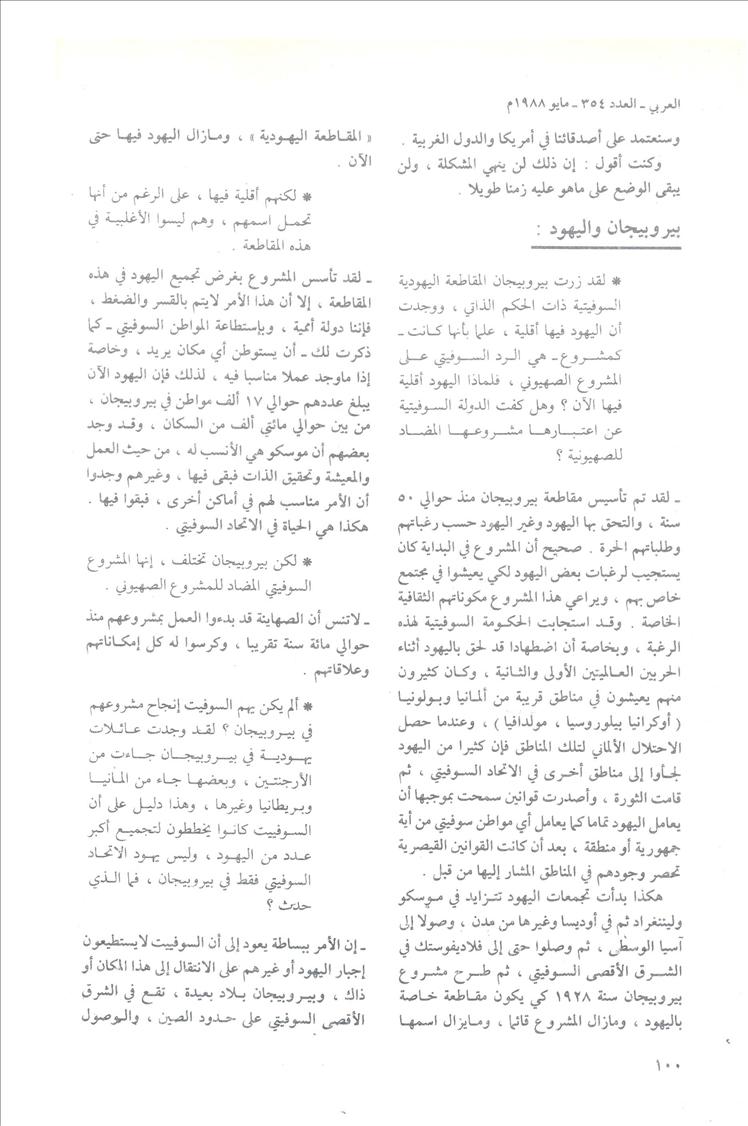 العربي ـ العدد ٣٥٤ ـ مايو ١٩٨٨م
وسنعتمد على أصدقائنا في أمريكا والدول الغربية .
وكنت أقول : إن ذلك لن ينهي المشكلة ، ولن
يبقى الوضع على ماهو عليه زمنا طويلا .
بيروبيجان واليهود :
* لقد زرت بيروبيجان المقاطعة اليهودية
السوفيتية ذات الحكم الذاتي ، ووجدت
أن اليهود فيها أقلية ، علما بأنها كانت ـ
كمشروع ـ هي الرد السوفيتي على
المشروع الصهيوني ، فلماذا اليهود أقلية
فيها الآن ؟ وهل كفت الدولة السوفيتية
عن اعتبارها مشروعها المضاد
للصهيونية ؟
ـ لقد تم تأسيس مقاطعة بيروبيجان منذ حوالي ٥٠
سنة ، والتحق بها اليهود وغير اليهود حسب رغباتهم
وطلباتهم الحرة . صحيح أن المشروع في البداية كان
يستجيب لرغبات بعض اليهود لكي يعيشوا في مجتمع
خاص بهم ، ويراعي هذا المشروع مكوناتهم الثقافية
الخاصة . وقد استجابت الحكومة السوفيتية لهذه
الرغبة ، وبخاصة أن اضطهادا قد لحق باليهود أثناء
الحربين العالميتين الأولى والثانية ، وكان كثيرون
منهم يعيشون في مناطق قريبة من ألمانيا وبولونيا
( أوكرانيا بيلوروسيا ، مولدافيا ) ، وعندما حصل
الاحتلال الألماني لتلك المناطق فإن كثيرا من اليهود
لجأوا إلى مناطق أخرى في الاتحاد السوفيتي ، ثم
قامت الثورة ، وأصدرت قوانين سمحت بموجبها أن
يعامل اليهود تماما كما يعامل أي مواطن سوفيتي من أية
جمهورية أو منطقة ، بعد أن كانت القوانين القيصرية
تحصر وجودهم في المناطق المشار إليها من قبل .
هكذا بدأت تجمعات اليهود تتزايد في موسكو
ولينتغراد ثم في أوديسا وغيرها من مدن ، وصولا إلى
آسيا الوسطى ، ثم وصلوا حتى إلى فلاديفوستك في
الشرق الأقصى السوفيتي ، ثم طرح مشروع
بيروبيجان سنة ١٩٢٨ كي يكون مقاطعة خاصة
باليهود ، ومازال المشروع قائما ، ومايزال اسمها
« المقاطعة اليهودية » ، ومازال اليهود فيها حتى
الآن .
* لكنهم أقلية فيها ، على الرغم من أنها
تحمل اسمهم ، وهم ليسوا الأغلبية في
هذه المقاطعة .
ـ لقد تأسس المشروع بغرض تجميع اليهود في هذه
المقاطعة ، إلا أن هذا الأمر لايتم بالقسر والضغط ،
فإننا دولة أممية ، وبإستطاعة المواطن السوفيتي ـ كما
ذكرت لك ـ أن يستوطن أي مكان يريد ، وخاصة
إذا ماوجد عملا مناسبا فيه ، لذلك فإن اليهود الآن
يبلغ عددهم حوالي ١٧ ألف مواطن في بيروبيجان ،
من بين حوالي مائتي ألف من السكان ، وقد وجد
بعضهم أن موسكو هي الأنسب له ، من حيث العمل
والمعيشة وتحقيق الذات فبقى فيها ، وغيرهم وجدوا
أن الأمر مناسب لهم في أماكن أخرى ، فبقوا فيها .
هكذا هي الحياة في الاتحاد السوفيتي .
* لكن بيروبيجان تختلف ، إنها المشروع
السوفيتي المضاد للمشروع الصهيوني .
ـ لاتنس أن الصهاينة قد بدءوا العمل بمشروعهم منذ
حوالي مائة سنة تقريبا ، وكرسوا له كل إمكاناتهم
وعلاقاتهم .
* ألم يكن يهم السوفيت إنجاح مشروعهم
في بيروبيجان ؟ لقد وجدت عائلات
يهودية في بيروبيجان جاءت من
الأرجنتين ، وبعضها جاء من المانيا
وبريطانيا وغيرها ، وهذا دليل على أن
السوفييت كانوا يخططون لتجميع أكبر
عدد من اليهود ، وليس يهود الاتحاد
السوفيتي فقط في بيروبيجان ، فما الذي
حدث ؟
ـ إن الأمر ببساطة يعود إلى أن السوفييت لايستطيعون
إجبار اليهود أو غيرهم على الانتقال إلى هذا المكان أو
ذاك ، وبيروبيجان بلاد بعيدة ، تقع في الشرق
الأقصى السوفيتي على حدود الصين ، والوصول
١٠٠